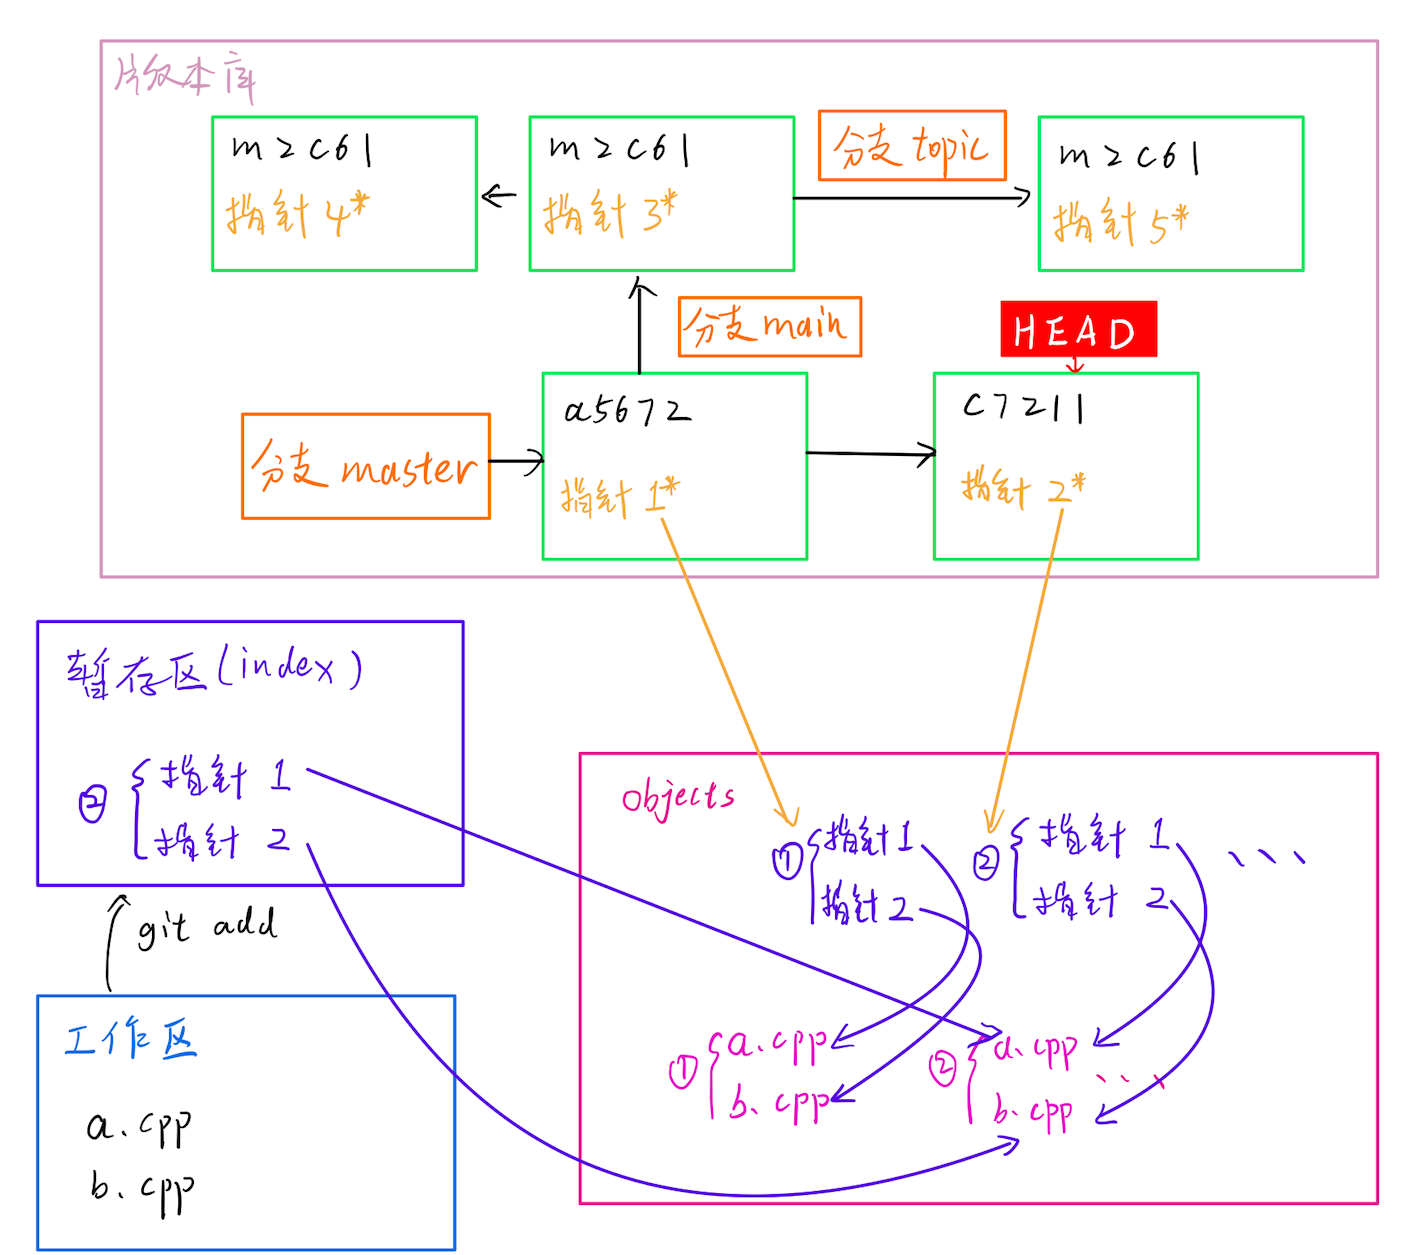 版本库
m2c61
指针4*
m2c61
指针3*
分支topic
m2c61
指针5*
分支main
HEAD
分支master
a5672
指针1*
c7211
指针2*
暂存区(index)
② 指针1
指针2
git add
工作区
a.cpp
b.cpp
objects
① 指针1
指针2
② 指针1
指针2
、、、
① a.cpp
b.cpp
② a.cpp
b.cpp
、、、